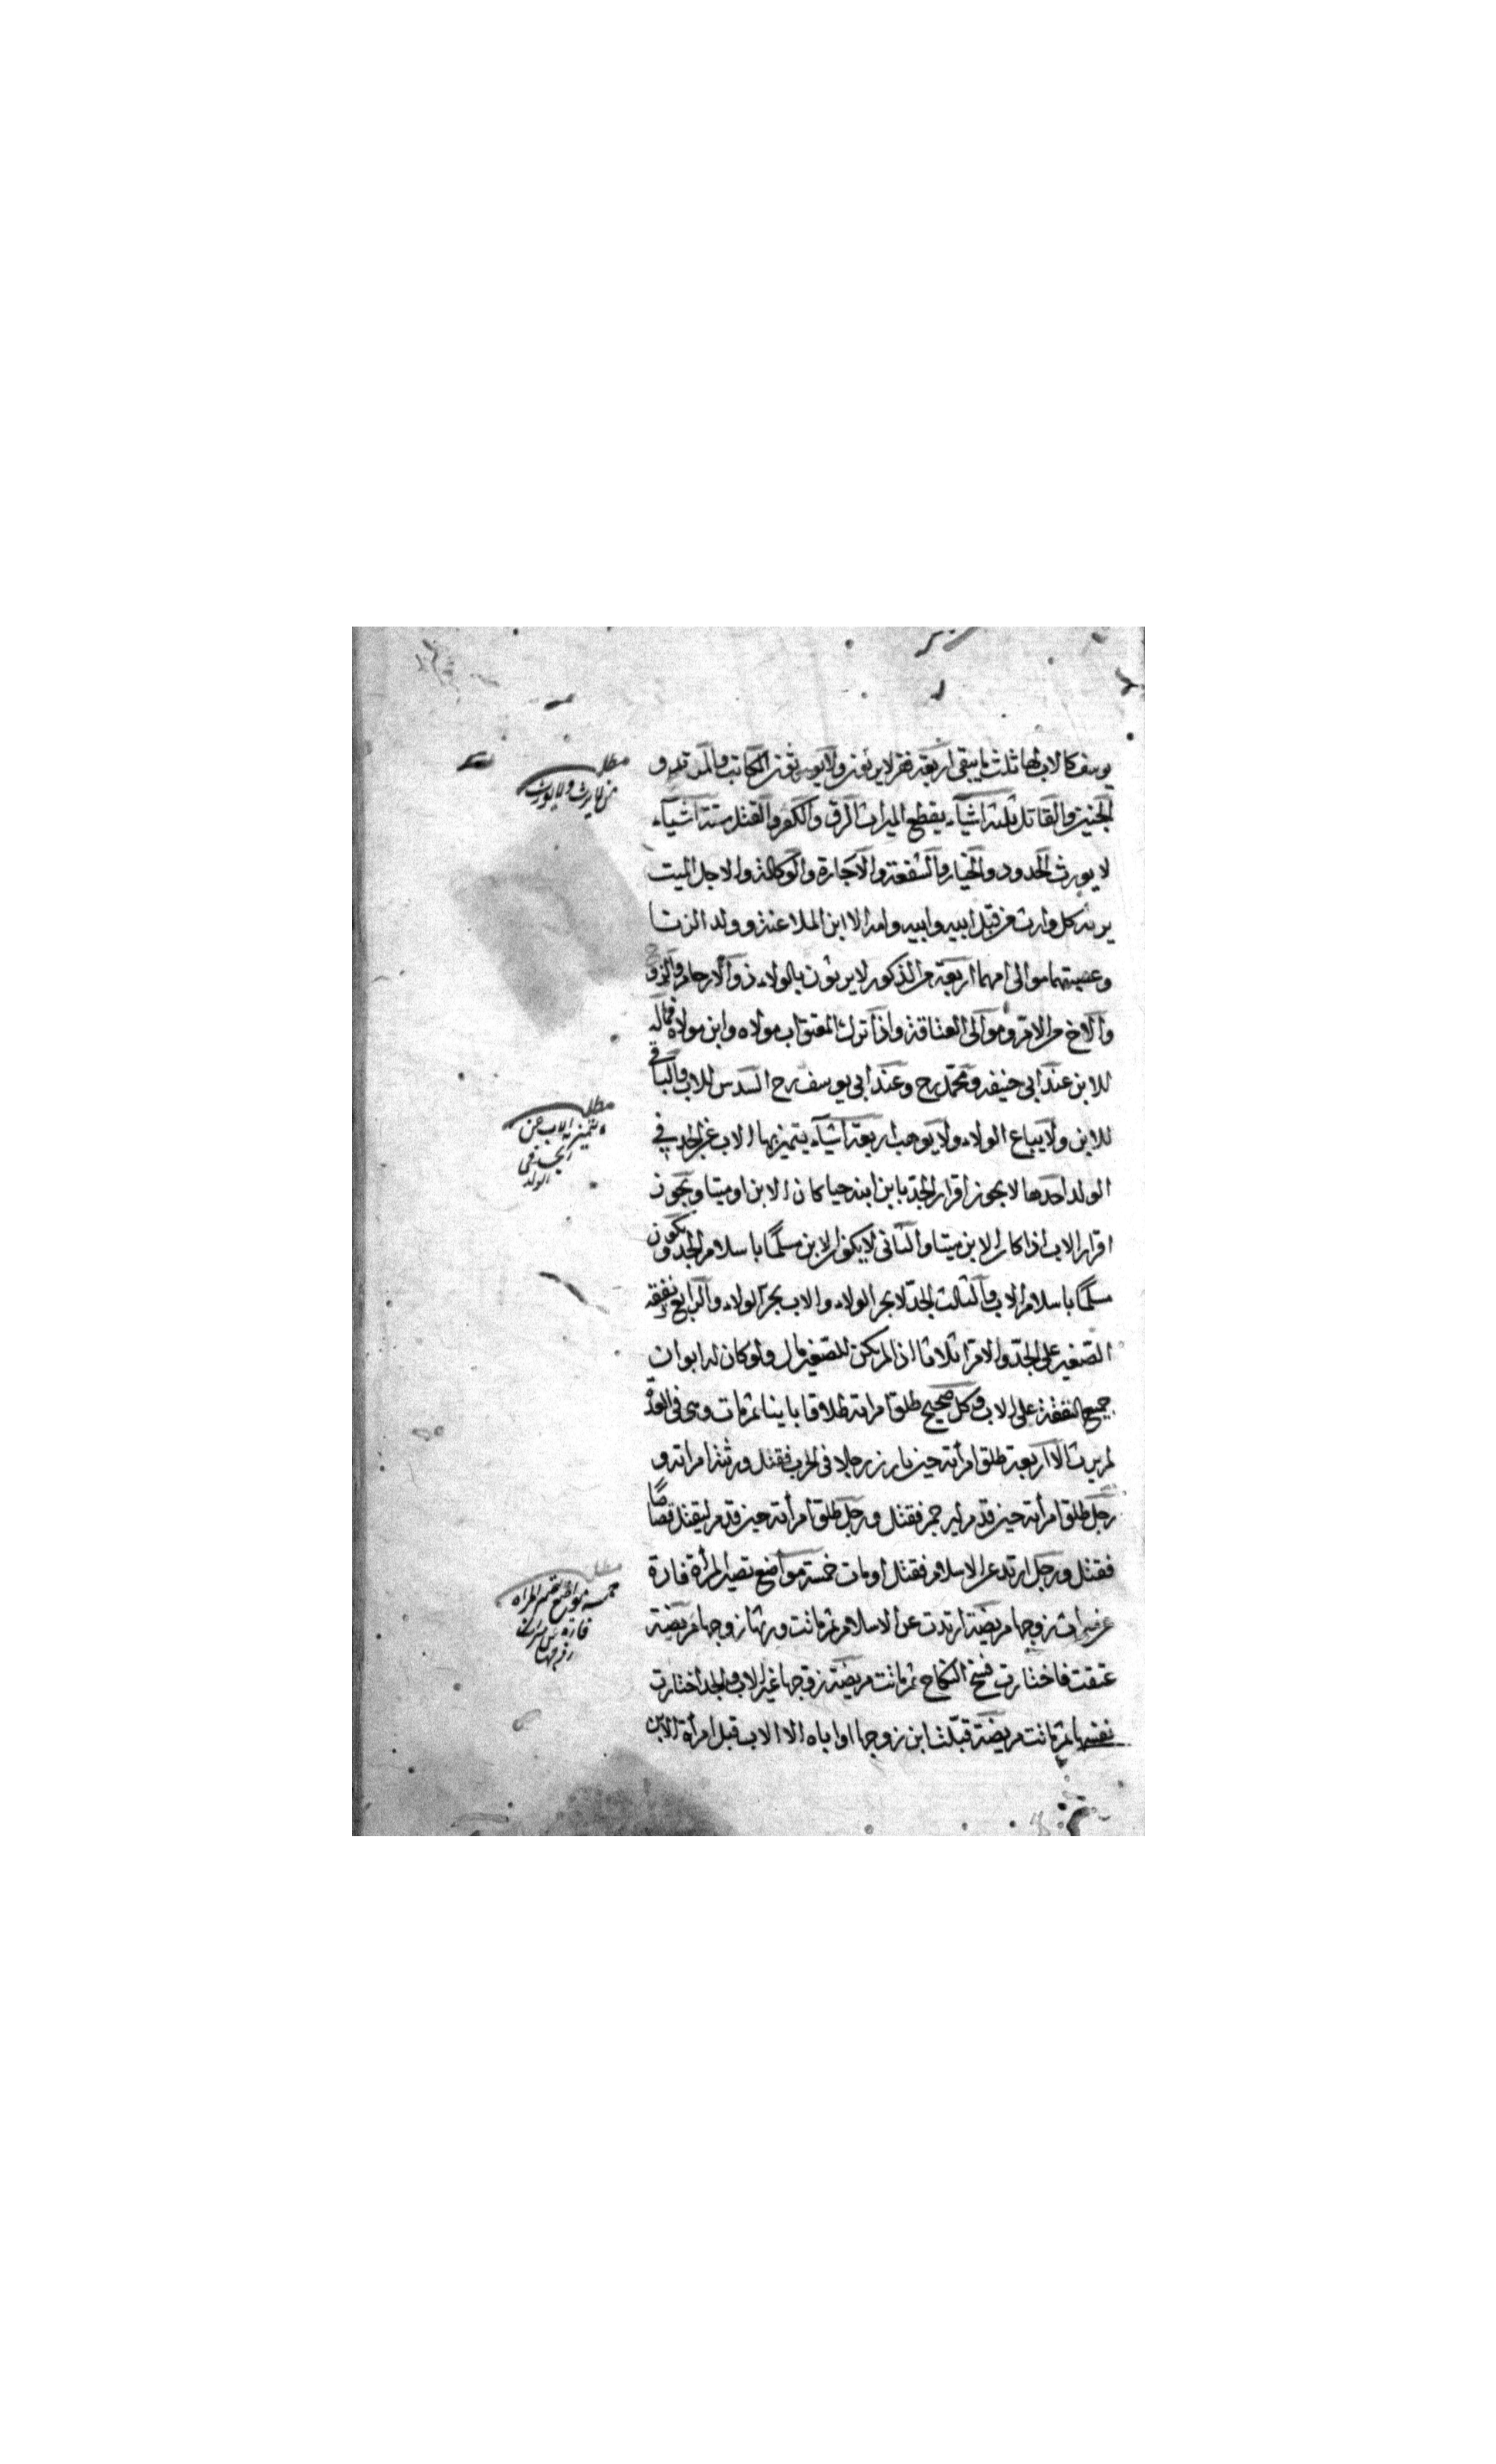 يوسف كالاب لها ثلث ما يبقى اربعة نفر لا يرثون ولا يورثون المكاتب والمرتد و
الجنين والقاتل ثلثة اشياء يقطع الميراث الرق والكفر والقتل ستة اشياء
لا يورث الحدود والخيار والشفعة والاجارة والوكالة والاجل الميت
يرثه كل وارث من قبل ابيه وابيه وامه الا ابن الملاعنة وولد الزنا
وعصبتهما موالى امهما اربعة من الذكور لا يرثون بالولاء ذو الارحام والزوج
والاخ من الام وموالى العتاقة واذا ترك المعتق اب مولاه وابن مولاه فماله
للابن عند ابى حنيفه ومحمد رح وعند ابى يوسف رح السدس للاب والباقى
للابن ولا يباع الولاء ولا يوهب اربعة اشياء يتميز بها الاب عن الجد فى
الولد احدها لا يجوز اقرار الجد بابن ابنه حيا كان الابن او ميتا ويجوز
اقرار الاب اذا كان الابن ميتا والثانى لا يكون الابن مسلما باسلام الجد ويكون
مسلما باسلام الاب والثالث الجد لا يجر الولاء والاب يجر الولاء والرابع نفقة
الصغير على الجد والام اثلاثا اذا لم يكن للصغير مال ولو كان له ابوان
جميع النفقة على الاب وكل صحيح طلق امراته طلاقا باينا ثم مات وهى فى العدة
لم يرث الا اربعة طلق امرأته حين بارز رجلا فى الحرب فقتل ورثته امراته و
رجل طلق امرأته حين قدم ليرجم فقتل ورجل طلق امرأته حين قدم ليقتل قصاصا
فقتل ورجل ارتد عن الاسلام فقتل او مات خمسة مواضع تصير المرأة فارة
عن ميراث زوجها مريضة ارتدت عن الاسلام ثم ماتت ورثها زوجها مريضة
عتقت فاختارت فسخ النكاح ثم ماتت مريضة زوجها غير الاب والجد اختارت
نفسها ثم ماتت مريضة قبلت ابن زوجها او اباه الا الاب قبل امرأة الابن
مطلب
من لا يرث ولا يورث
مطلب
يتميز الاب عن
الجد فى
الولد
مطلب
خمسة مواضع تصير المراة
فارة من ميراث
زوجها